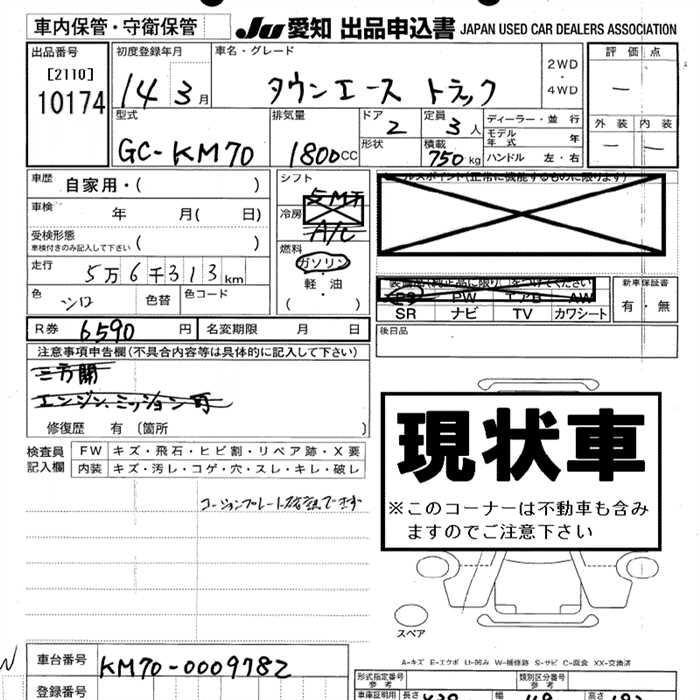 車内保管・守衛保管
JU 愛知 出品申込書 JAPAN USED CAR DEALERS ASSOCIATION
出品番号 初度登録年月 車名・グレード 評価点
[2110]
10174 14 3月 タウンエース トラック 2WD・4WD 一
型式 排気量 ドア 定員 ディーラー・並行 外装 内装
GC-KM70 1800cc 2 3人 モデル年式 年 一 一
形状 積載 750kg ハンドル 左・右
車歴 自家用・( ) シフト 5MT セールスポイント(正常に機能するものに限ります)
車検 年 月( 日) 冷房 A/C
受検形態 車検付きのみ記入して下さい ( ) 燃料
走行 5万6千313km ガソリン・軽油 ( )
装備品(純正品に限り○をつけてください) 新車保証書
PS PW エアB AW 有・無
SR ナビ TV カワシート
色 シロ 色替 色コード
R券 6590円 名変期限 月 日 後日品
注意事項申告欄(不具合内容等は具体的に記入して下さい)
三方開
エンジン.ミッション可
修復歴 有 〔箇所 〕
検査員記入欄 FW キズ・飛石・ヒビ割・リペア跡・X要
内装 キズ・汚レ・コゲ・穴・スレ・キレ・破レ
コーションプレート確認できず
現状車
※このコーナーは不動車も含み
ますのでご注意下さい
スペア
A-キズ E-エクボ U-凹み W-補修跡 S-サビ C-腐食 XX-交換済
車台番号 KM70-0009782
登録番号
形式指定番号 参考 類別区分番号 参考
車庫証明用 長さ 幅 高さ